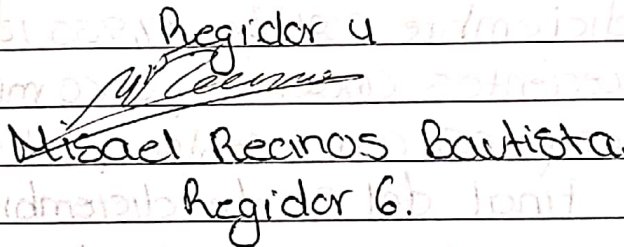 Regidor 4
Misael Recinos Bautista.
Regidor 6.